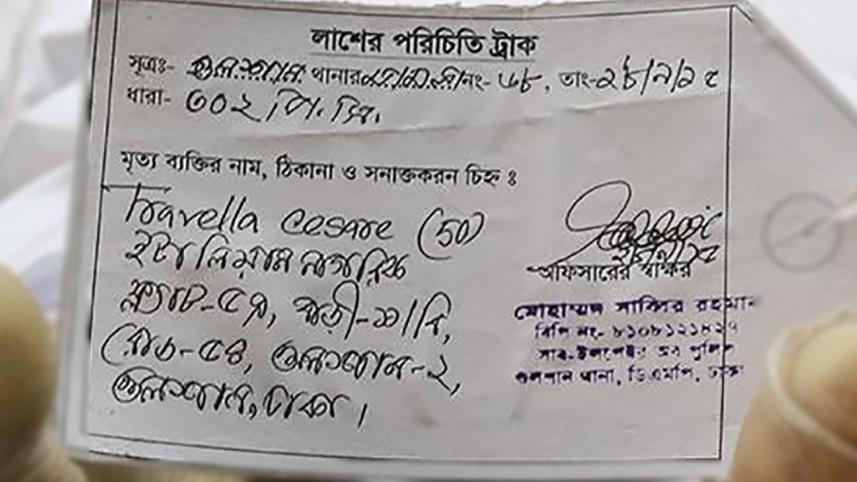 লাশের পরিচিতি ট্রাক
সূত্রঃ- গুলশান থানার নং- ৬৮, তাং-২৮/৯/১৫
ধারা- ৩০২ পি.সি.
মৃত্য ব্যক্তির নাম, ঠিকানা ও সনাক্তকরন চিহ্ন ঃ
Travella Cesare (50)
ইটালিয়ান নাগরিক
ফ্ল্যাট-৫এ, বাড়ী-১১/বি,
রোড-৫৪, গুলশান-২,
গুলশান, ঢাকা।
২৮/৯/১৫
অফিসারের স্বাক্ষর
মোহাম্মদ সাব্বির রহমান
বিপি নং- ৮১০৮১২১৪২৭
সাব-ইন্সপেক্টর অব পুলিশ
গুলশান থানা, ডিএমপি, ঢাকা